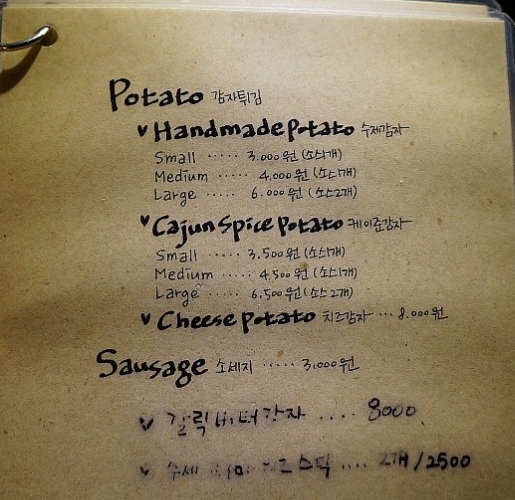 Potato 감자튀김
Handmade Potato 수제감자
Small ····· 3.000원 (소스1개)
Medium ····· 4.000원 (소스1개)
Large ····· 6.000원 (소스2개)
Cajun Spice Potato 케이준감자
Small ····· 3.500원 (소스1개)
Medium ····· 4.500원 (소스1개)
Large ····· 6.500원 (소스2개)
Cheese Potato 치즈감자 ··· 8.000원
Sausage 소세지 ····· 3.000원
갈릭버터감자 .... 8000
수제 스틱 .... 2개/2500